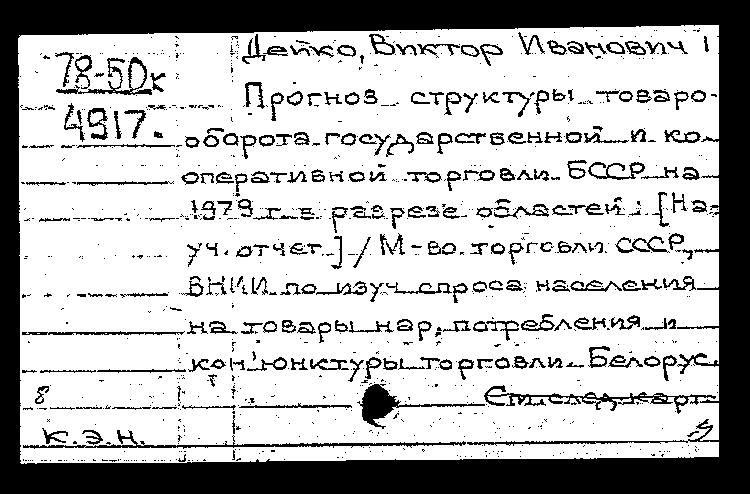 Дейко, Виктор Иванович 1
78-5Dк
4917.
Прогноз структуры товаро-
оборота государственной и ко-
оперативной торговли БССР на
1979 г. в разрезе областей: [На-
уч. отчет] / М-во торговли СССР,
ВНИИ по изуч. спроса населения
на товары нар. потребления и
кон'юнктуры торговли. Белорус.
8
См. след. карт.
к.э.н.